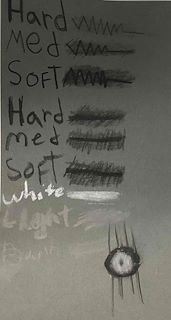 Hard
Med
Soft
Hard
med
Soft
White
Light